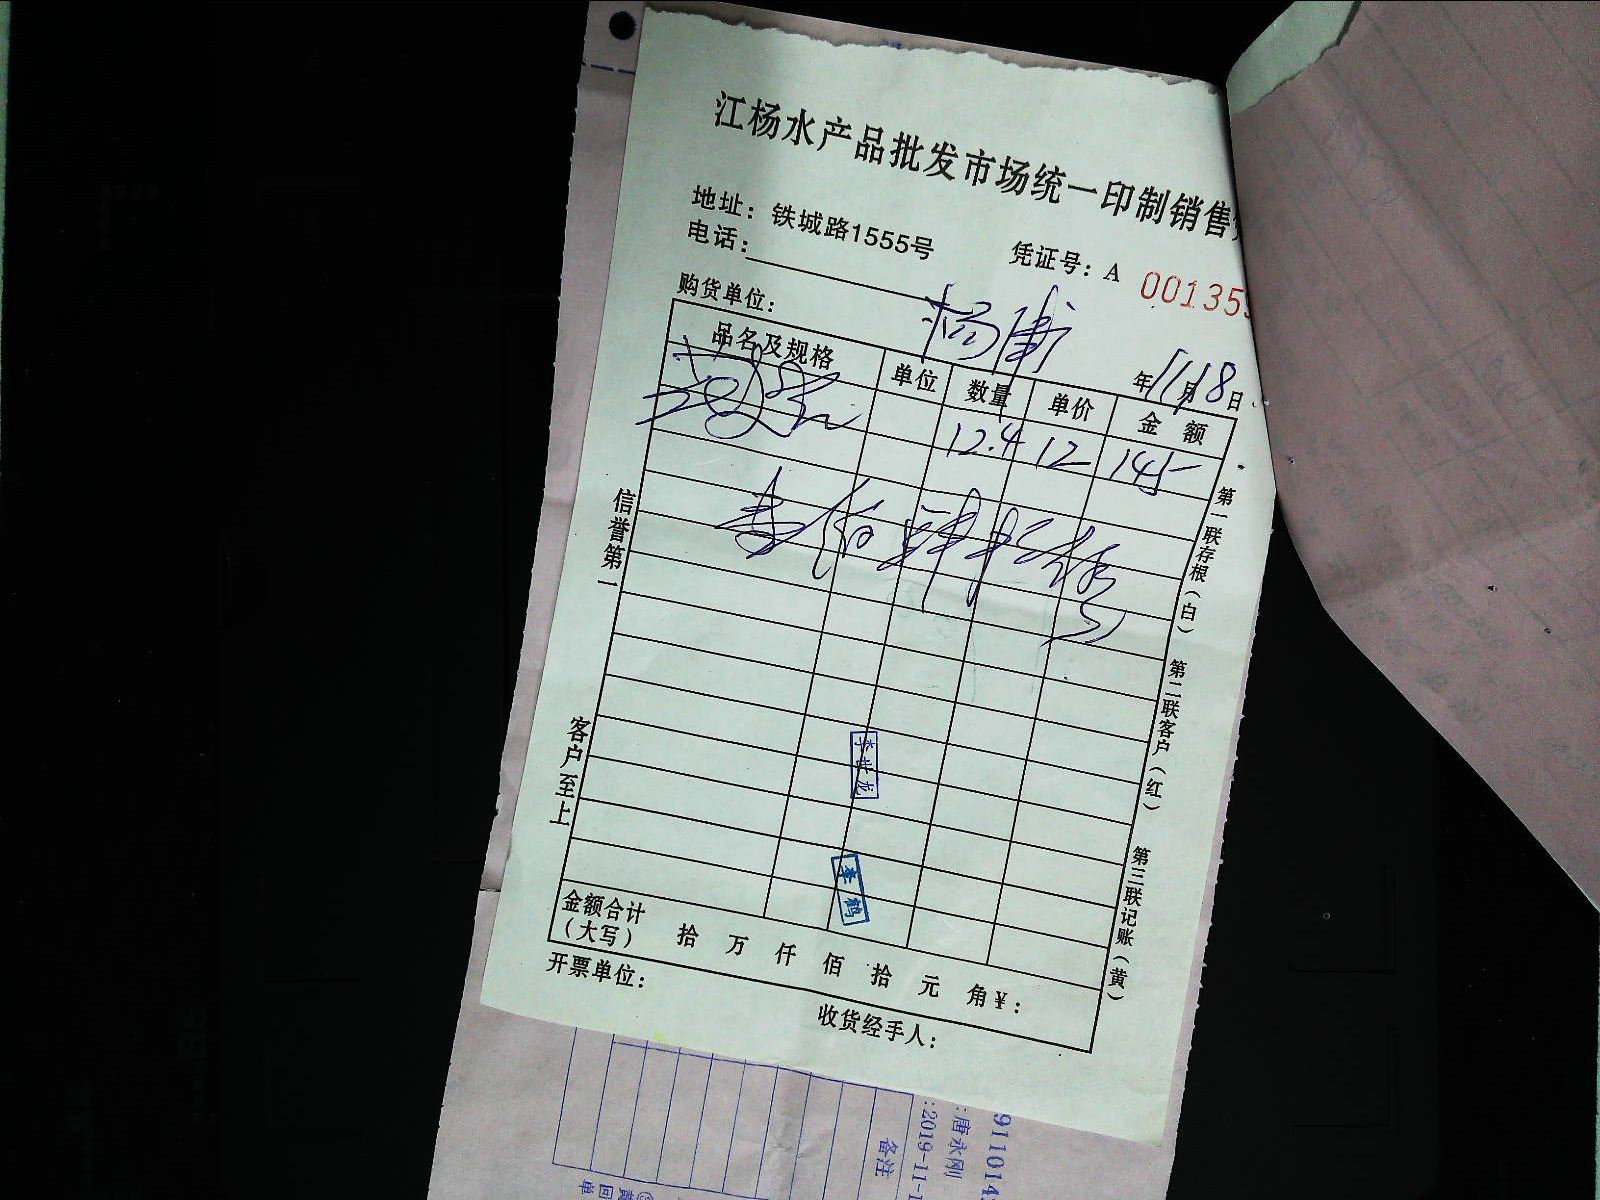 江杨水产品批发市场统一印制销售
地址：铁城路1555号
凭证号：A 00135
电话：
购货单位：
年 11月18日
品名及规格 单位 数量 单价 金额
12.4 12 145
壹佰肆拾
信誉第一
客户至上
第一联存根（白）
第二联客户（红）
第三联记账（黄）
李世龙
李鹤
金额合计（大写） 拾 万 仟 佰 拾 元 角¥：
开票单位：
收货经手人：
备注
:2019-11-1
:唐永刚
911014